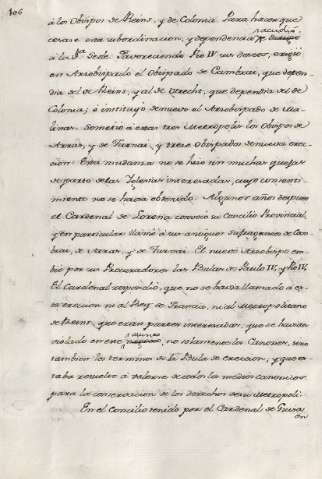 106
á los Obispos de Reims, y de Colonia. Para hacer que
cesara esta subordinacion, y dependencia acudió
á la Sta. Sede. Favoreciendo Pio IV sus deseos, erigió
en Arzobispado el Obispado de Cambrai, que depen-
dia del de Reims, y al de Utrecht, que dependia del de
Colonia; é instituyó de nuevo el Arzobispado de Ma-
linas. Sometió á estas tres Metropolis los Obispos de
Arras, y de Turnai, y trece Obispados de nueva ere-
cion. Esta mudanza no se hizo sin muchas quejas
de parte de las Iglesias interesadas, cuyo consenti-
miento no se havia obtenido. Algunos años despues
el Cardenal de Lorena convocó su Concilio Provincial,
y en particular llamó á sus antiguos sufraganeos de Cam-
brai, de Arras, y de Turnai. El nuevo Arzobispo em-
bió por sus Procuradores las Bulas de Paulo IV, y Pio IV.
El Cardenal respondió, que no se havia llamado á es-
ta ereccion ni al Rey de Francia, ni al Metropolitano
de Reims, que eran partes interesadas, que se havian
violado en este asunto, no solamente los Canones, sino
tambien los terminos de la Bula de ereccion, y que es-
taba resuelto á valerse de todos los medios canonicos
para la conservacion de los derechos de su Metropoli.
En el Concilio tenido por el Cardenal de Guisa
en